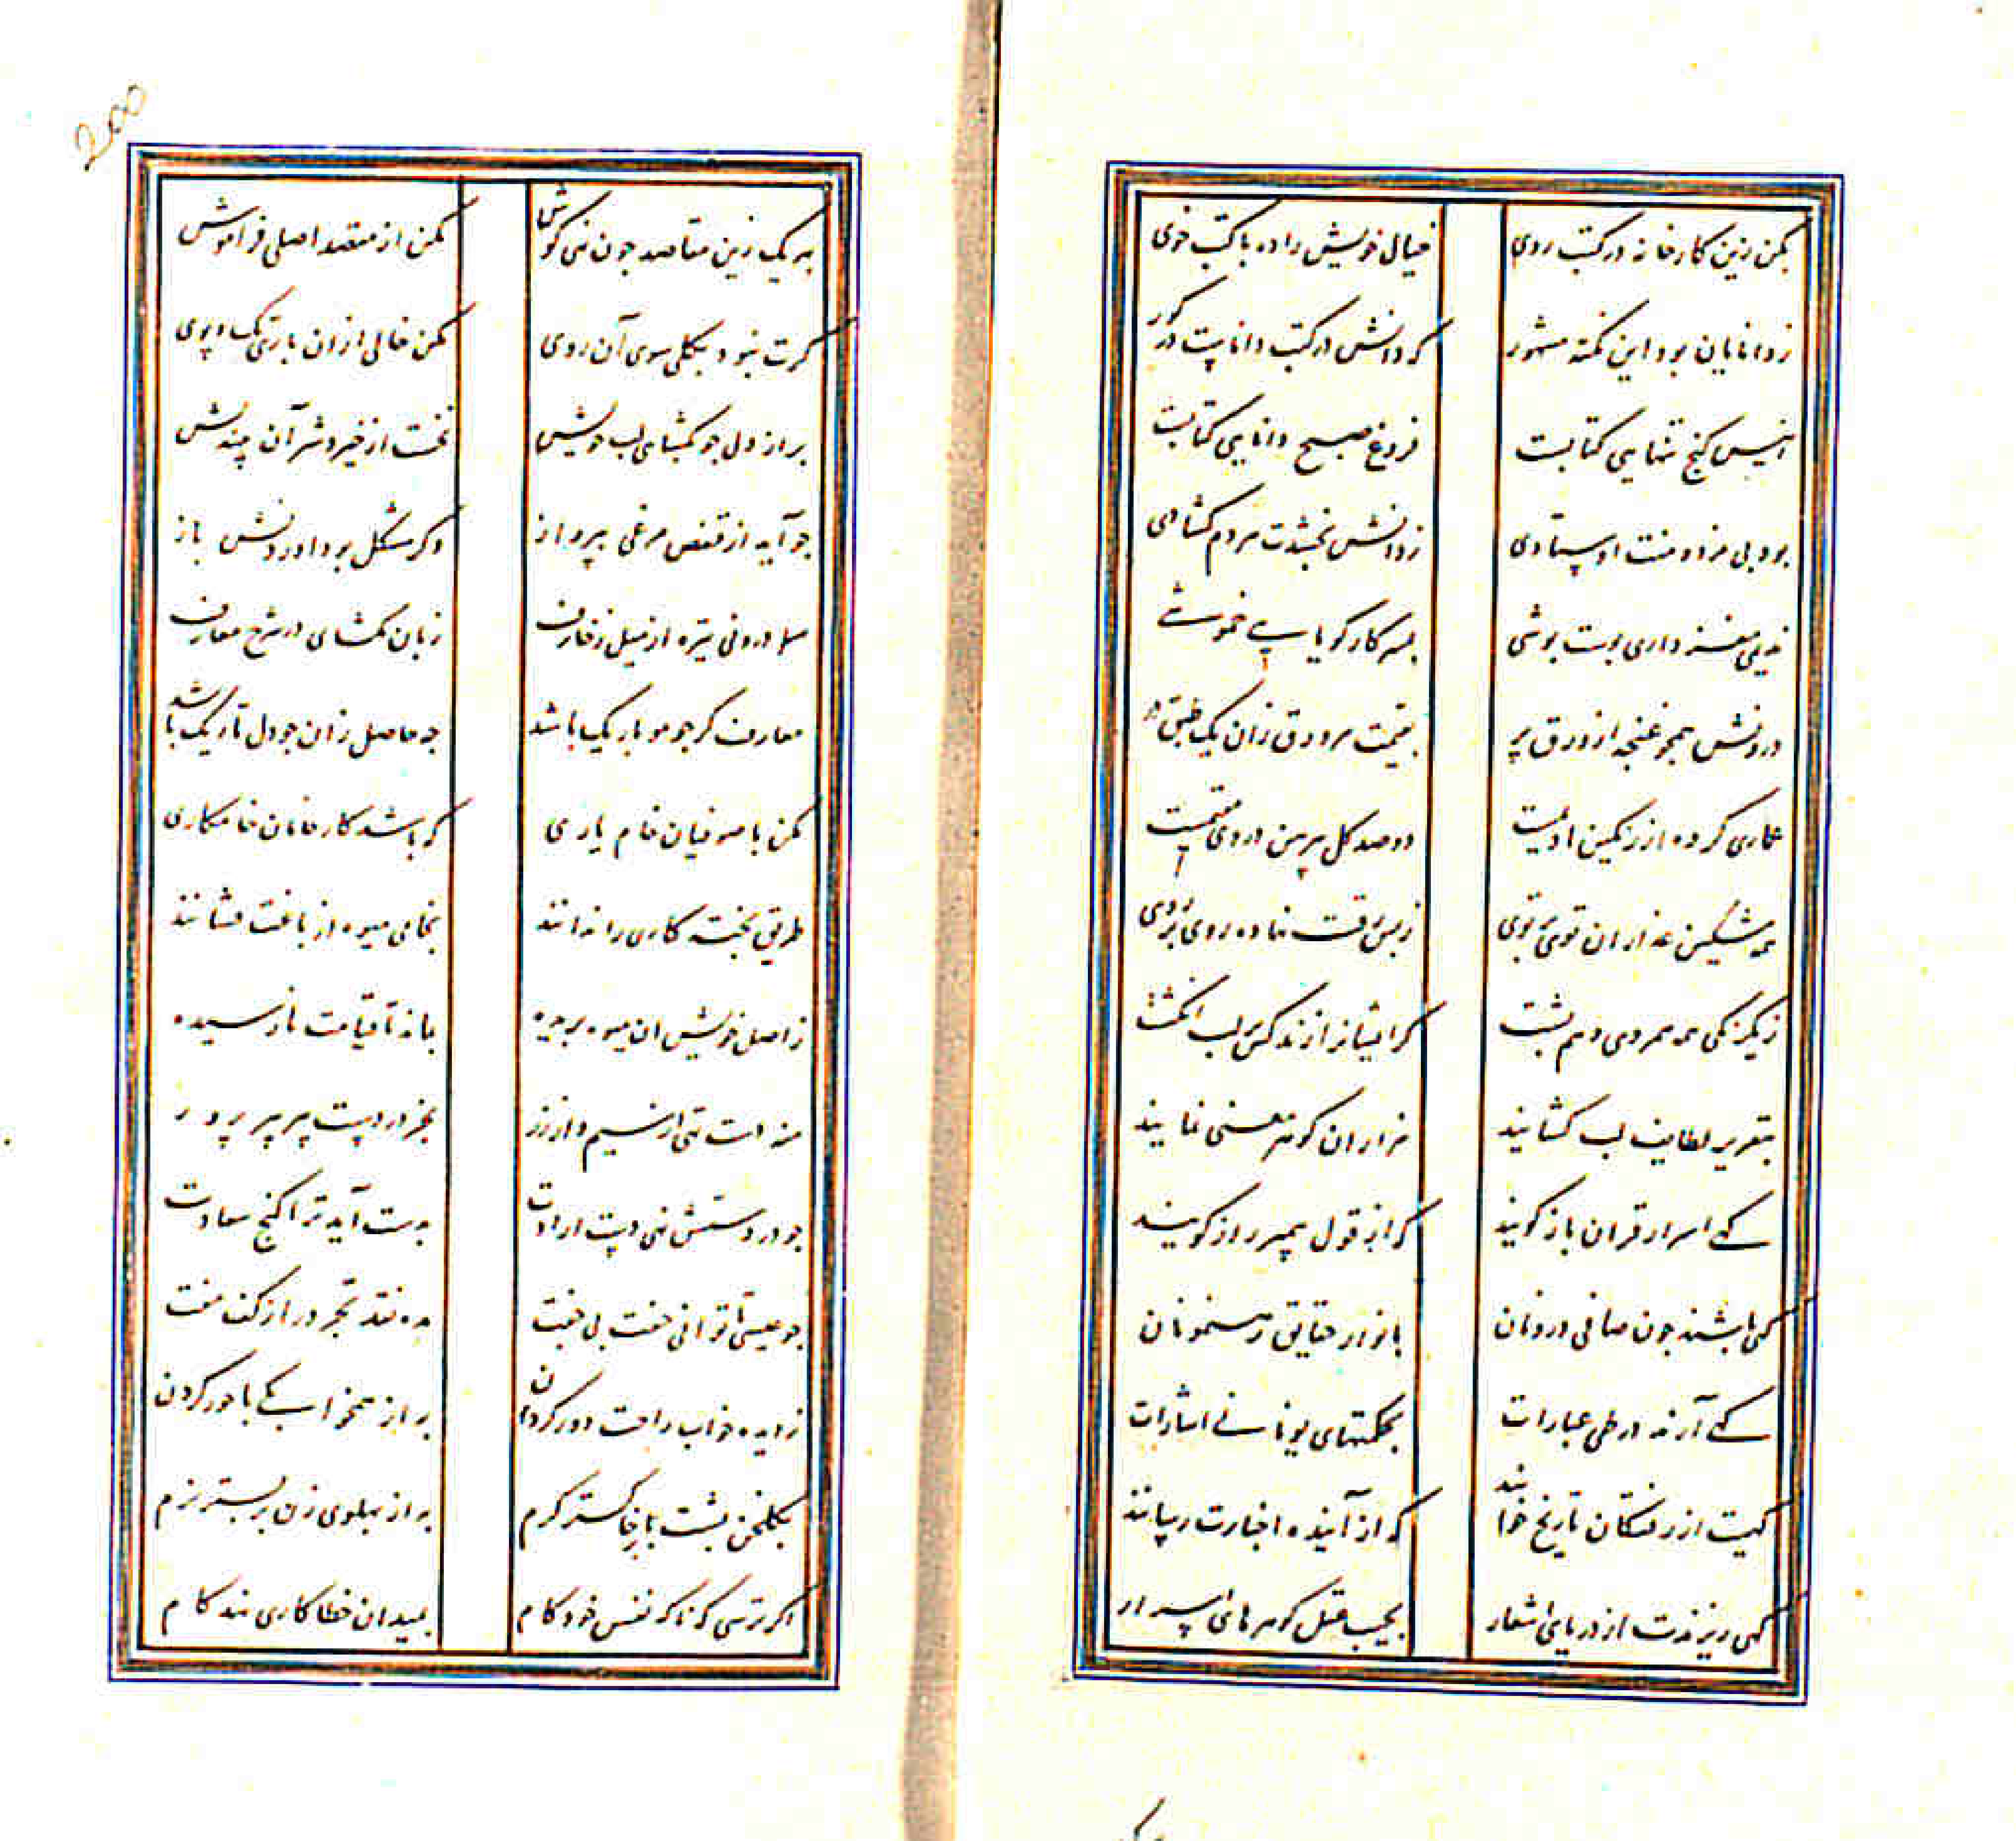 بکن زین کارخانه در کتب روی خیال خویش را ده با کتب خوی
ز دانایان بود این نکته مشهور که دانش در کتب داناست در کور
انیس کنج تنهایی کتابست فروغ صبح دانایی کتابست
بود بی مزد و منت اوستادی ز دانش بخشدت هر دم کشادی
ندیمی مغز داری پوست پوشی بسر کار کویایی خموشی
درونش همچو غنچه از ورق پر بقیمت هر ورق زان یک طبق در
عماری کرده از رنکین ادیمست دو صد کل پیرهن در وی مقیمست
همه مشکین عذاران توی بر توی ز بس رقت نهاده روی بر روی
ز یکرنکی همه هم روی و هم پشت کر ایشانرا زند کس بر لب انکشت
بتقریر لطایف لب کشایند هزاران کوهر معنی نمایند
کهی اسرار قران باز کویند که از قول پیمبر راز کویند
کهی باشند چون صافی درونان بانوار حقایق رهنمونان
کهی آرند در طی عبارات بحکمتهای یونانی اشارات
کهیت از رفتکان تاریخ خوانند که از آینده اخبارت رسانند
کهی ریزندت از دریای اشعار بجیب عقل کوهرهای اسرار
200
بهر یک زین مقاصد چون نهی کوش مکن از مقصد اصلی فراموش
کرت نبود بکلی سوی آن روی مکن خالی ازان باری تک و پوی
براز دل چو بکشایی لب خویش نخست از خیر و شر آن بیندیش
چو آید از قفص مرغی بپرواز دکر مشکل بود آوردنش باز
درونی تیره از میل زخارف زبان مکشای در شرح معارف
معارف کر چو مو باریک باشد چه حاصل زان چو دل تاریک باشد
مکن با صوفیان خام یاری که باشد کار خامان خامکاری
طریق پخته کاری را ندانند بخامی میوه از باغت فشانند
ز اصل خویش ان میوه بریده بماند تا قیامت نارسیده
منه دست تهی از سیم و از زر بجز در دست پیر پیر پرور
چو در دستش نهی دست ارادت بدست آید ترا کنج سعادت
چو عیسی تا توانی خفت بی جفت مده نقد تجرد از کف مفت
ز دیده خواب راحت دور کردن به از همخوابکی با حور کردن
بکلخن پشت بر خاکستر کرم به از پهلوی زن بر بستر نرم
اکر ترسی که ناکه نفس خودکام بمیدان خطاکاری نهد کام